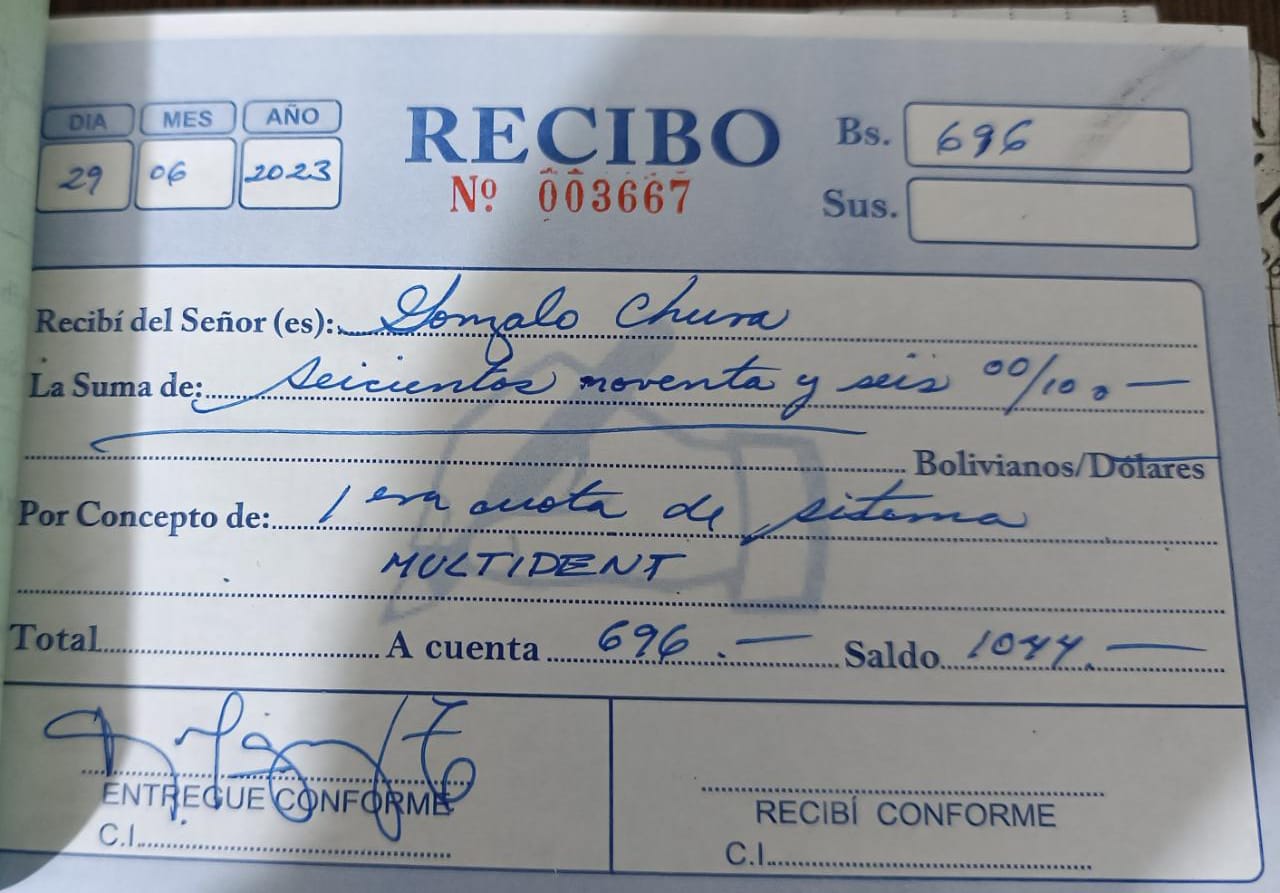 DIA MES AÑO
29 06 2023
RECIBO
Nº 003667
Bs. 696
Sus.
Recibí del Señor (es): Gonzalo Chura
La Suma de: Seicientos noventa y seis 00/100
Bolivianos/Dólares
Por Concepto de: 1 era cuota de sitema
MULTIDENT
Total A cuenta 696.— Saldo 1044.—
ENTREGUE CONFORME
C.I.
RECIBÍ CONFORME
C.I.